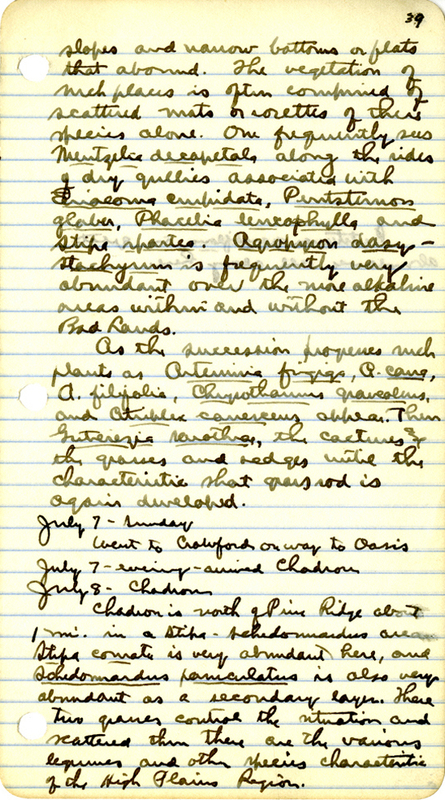 39
slopes and narrow bottoms or flats
that abound. The vegetation of
such places is often comprised of
scattered mats or rosettes of these
species alone. One frequently sees
Mentzelia decapetala along the sides
of dry gullies associated with
cuspidata, Pentstemon
glaber, Phacelia leucophylla and
Stipa spartea. Agropyron dasy-
stachyum is frequently very
abundant over the more alkaline
areas within and without the
Bad Lands.
As the succession progresses such
plants as Artemisia frigiga, A. cana,
A. filifolia, Chrysothamnus graveolens,
and Atriplex canescens appear. Then
Guterezia sarothrae, the cactuses &
the grasses and sedges until the
characteristic short grass sod is
again developed.
July 7 - Sunday
Went to Crawford on way to Oasis
July 7 - evening - arrived Chadron
July 8 - Chadron
Chadron is north of Pine Ridge about
1 mi. in a Stipa - Schedonnardus area
Stipa comata is very abundant here, and
Schedonnardus paniculatus is also very
abundant as a secondary layer. These
two grasses control the situation and
scattered thru there are the various
legumes and other species characteristic
of the High Plains Region.